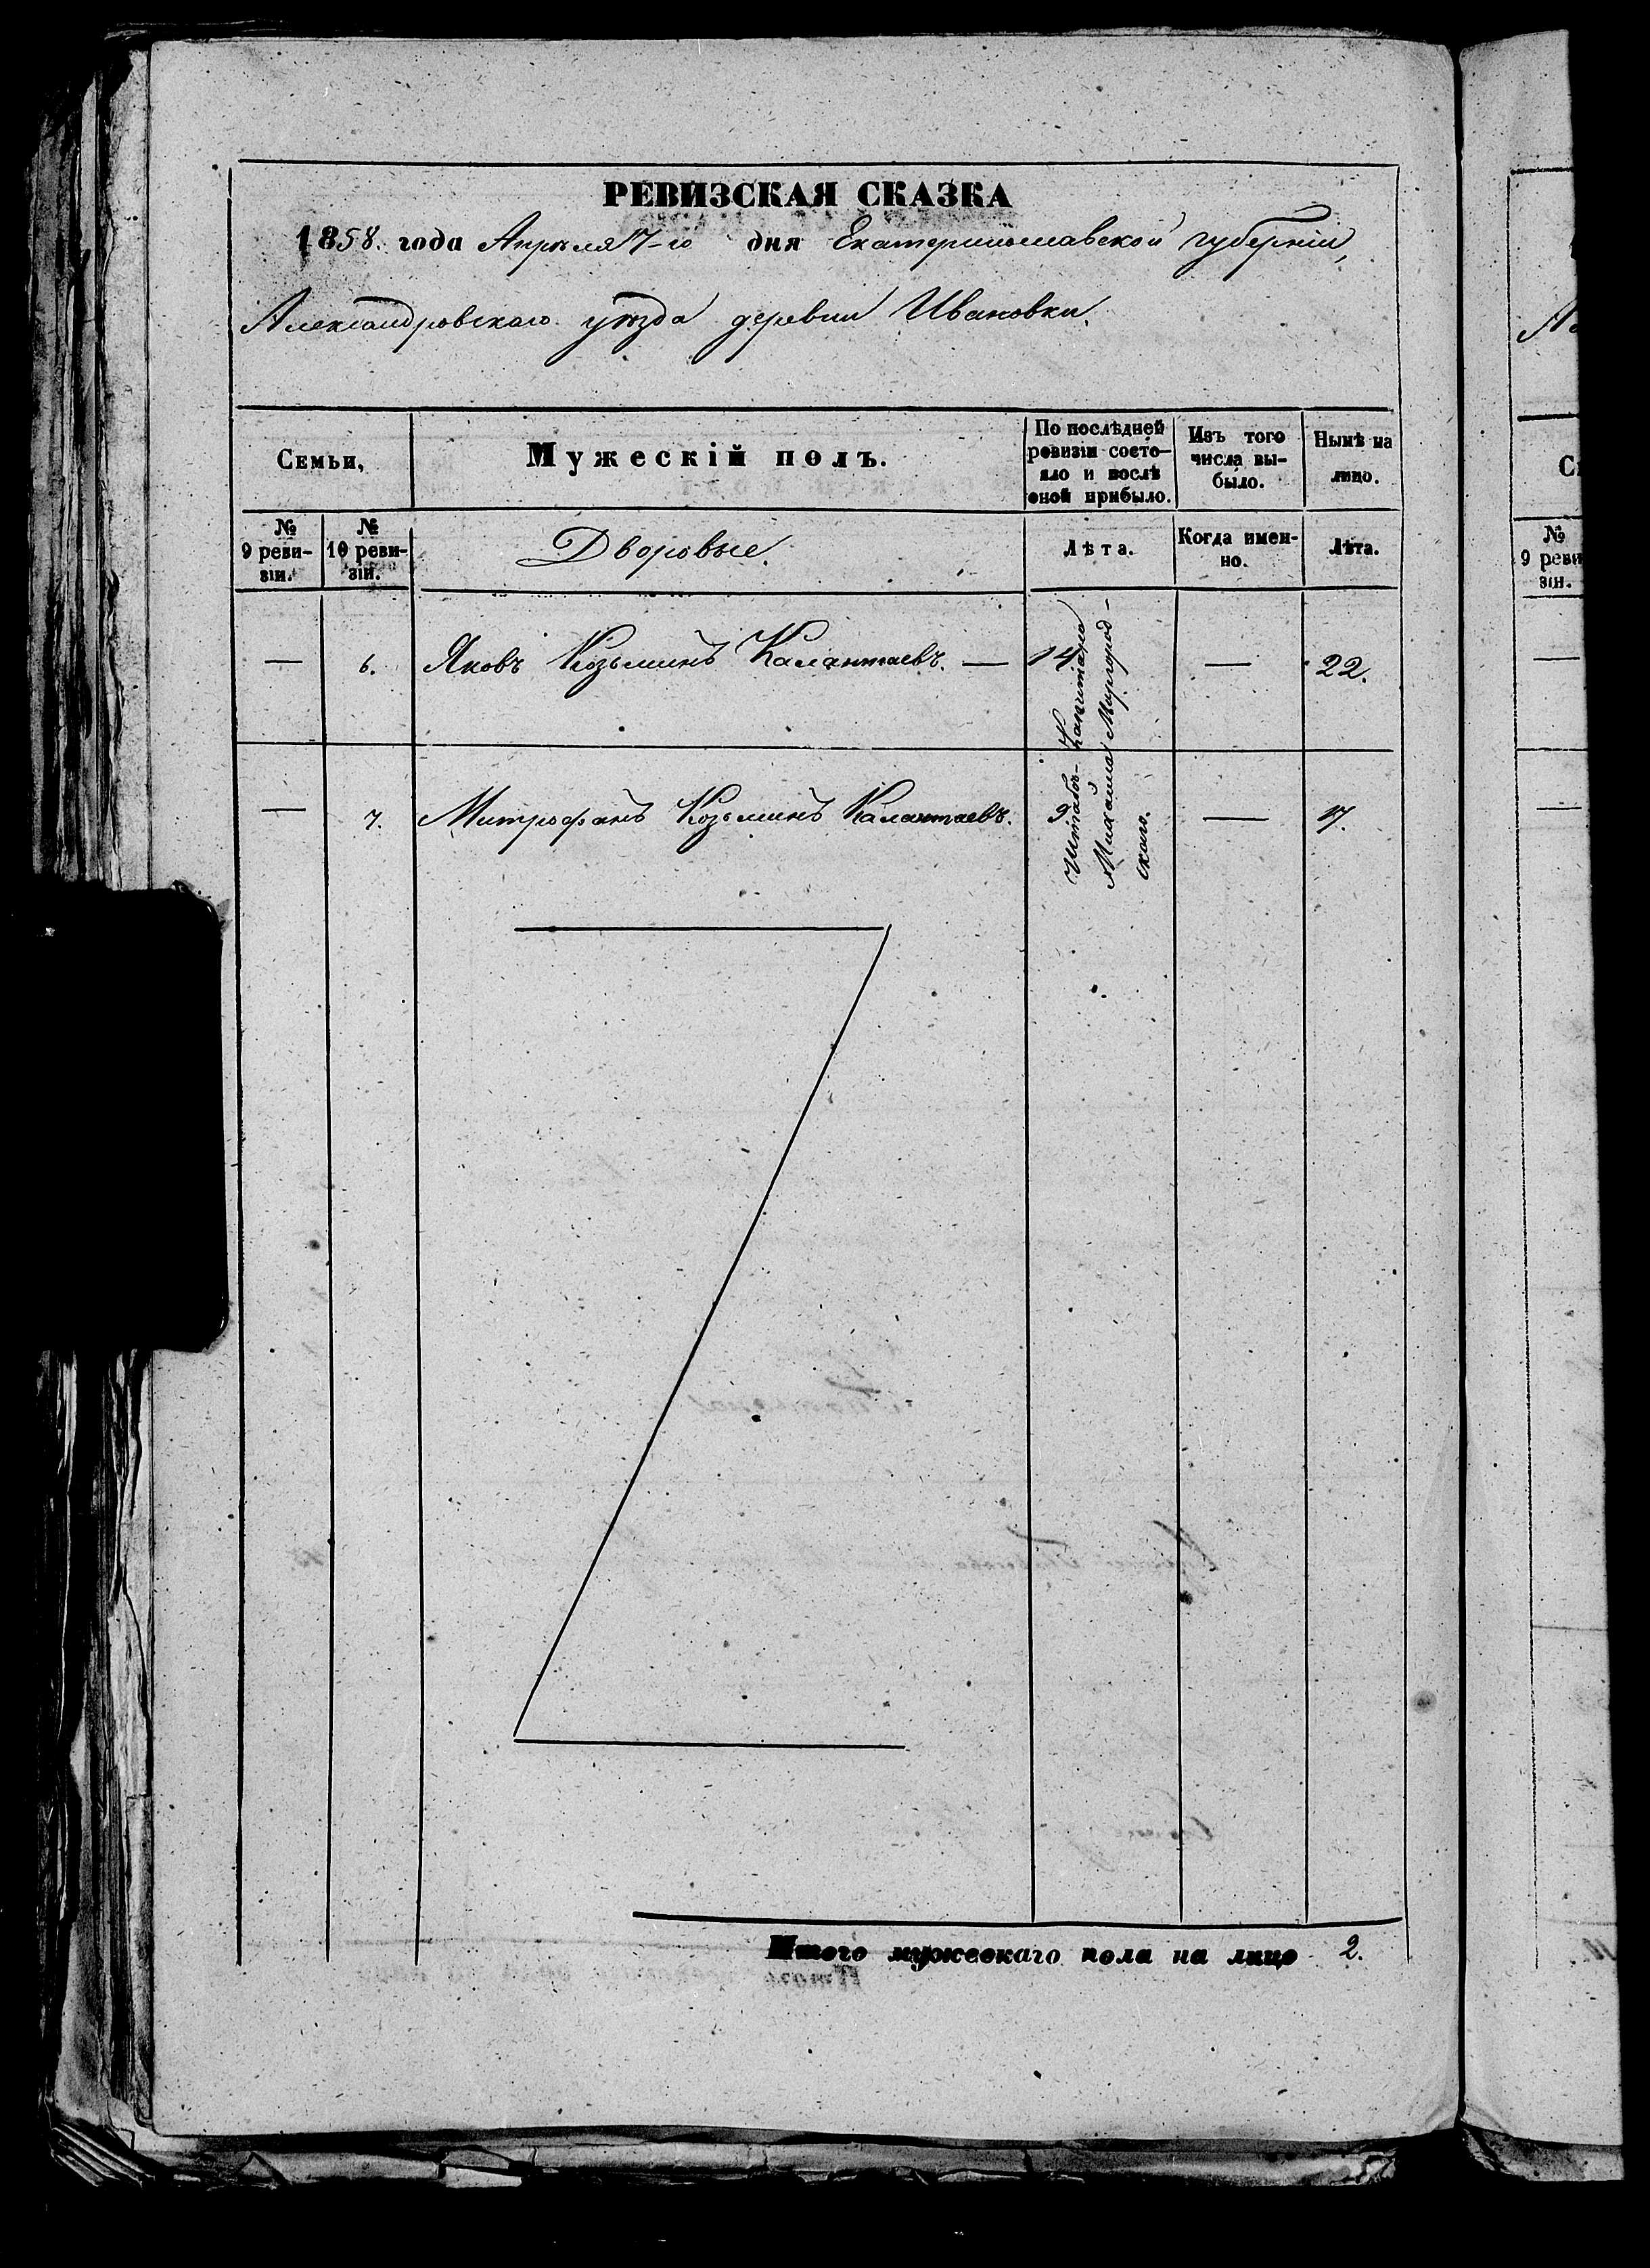 РЕВИЗСКАЯ СКАЗКА
1858. года Апрѣля 17-го дня Екатеринославской губерніи,
Александровскаго уѣзда деревни Ивановки.
Семьи,
Мужескій полъ.
По послѣдней
ревизіи состо-
яло и послѣ
оной прибыло.
Изъ того
числа вы-
было.
Нынѣ на
лицо.
№
9 реви-
зіи.
№
10 реви-
зіи.
Дворовые.
Лѣта.
Когда имен-
но.
Лѣта.
— 6. Яковъ Козьминъ Калантаевъ. — 14 — 22.
— 7. Митрофанъ Козьминъ Калантаевъ. 9 — 17.
Штабъ-Капитана
Михаила Миргород-
скаго.
Итого мужескаго пола на лицо 2.
№
9 реви
зін.